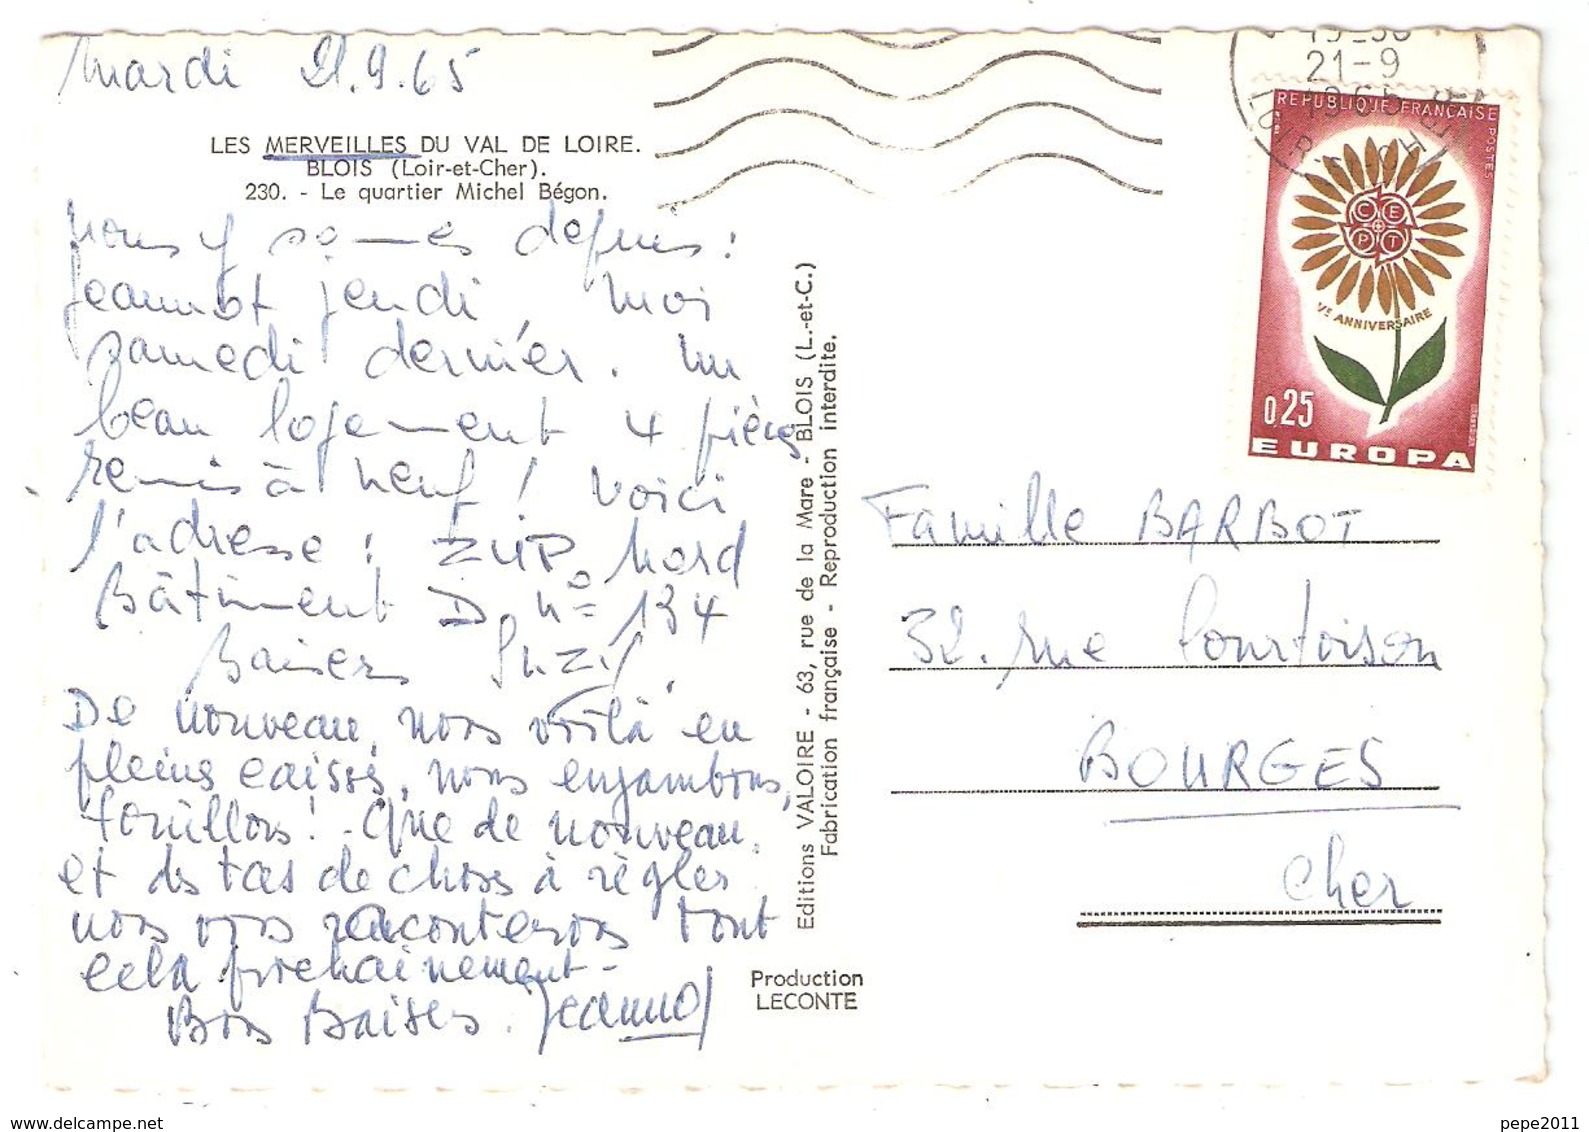 Mardi 21.9.65
LES MERVEILLES DU VAL DE LOIRE.
BLOIS (Loir-et-Cher).
230. - Le quartier Michel Bégon.
Nous y sommes depuis :
Jeannot jeudi, moi
samedi dernier. Un
beau logement 4 pièces
remis à neuf ! Voici
l'adresse : ZUP. Nord
Bâtiment D. n° 134
Baisers Suzy.
De nouveau, nous voilà en
pleins caisses, nous enjambons,
fouillons ! Que de nouveau,
et des tas de choses à régler
nous vous raconterons tout
cela prochainement -
Bons Baisers. Jeannot
Editions VALOIRE - 63, rue de la Mare - BLOIS (L.-et-C.)
Fabrication française - Reproduction interdite.
Production
LECONTE
21-9
1965
LOIR-&-CH
REPUBLIQUE FRANÇAISE
POSTES
C E
P T
Ve ANNIVERSAIRE
0,25
EUROPA
Famille BARBOT
32. rue Courtoison
BOURGES
Cher
www.delcampe.net
pepe2011